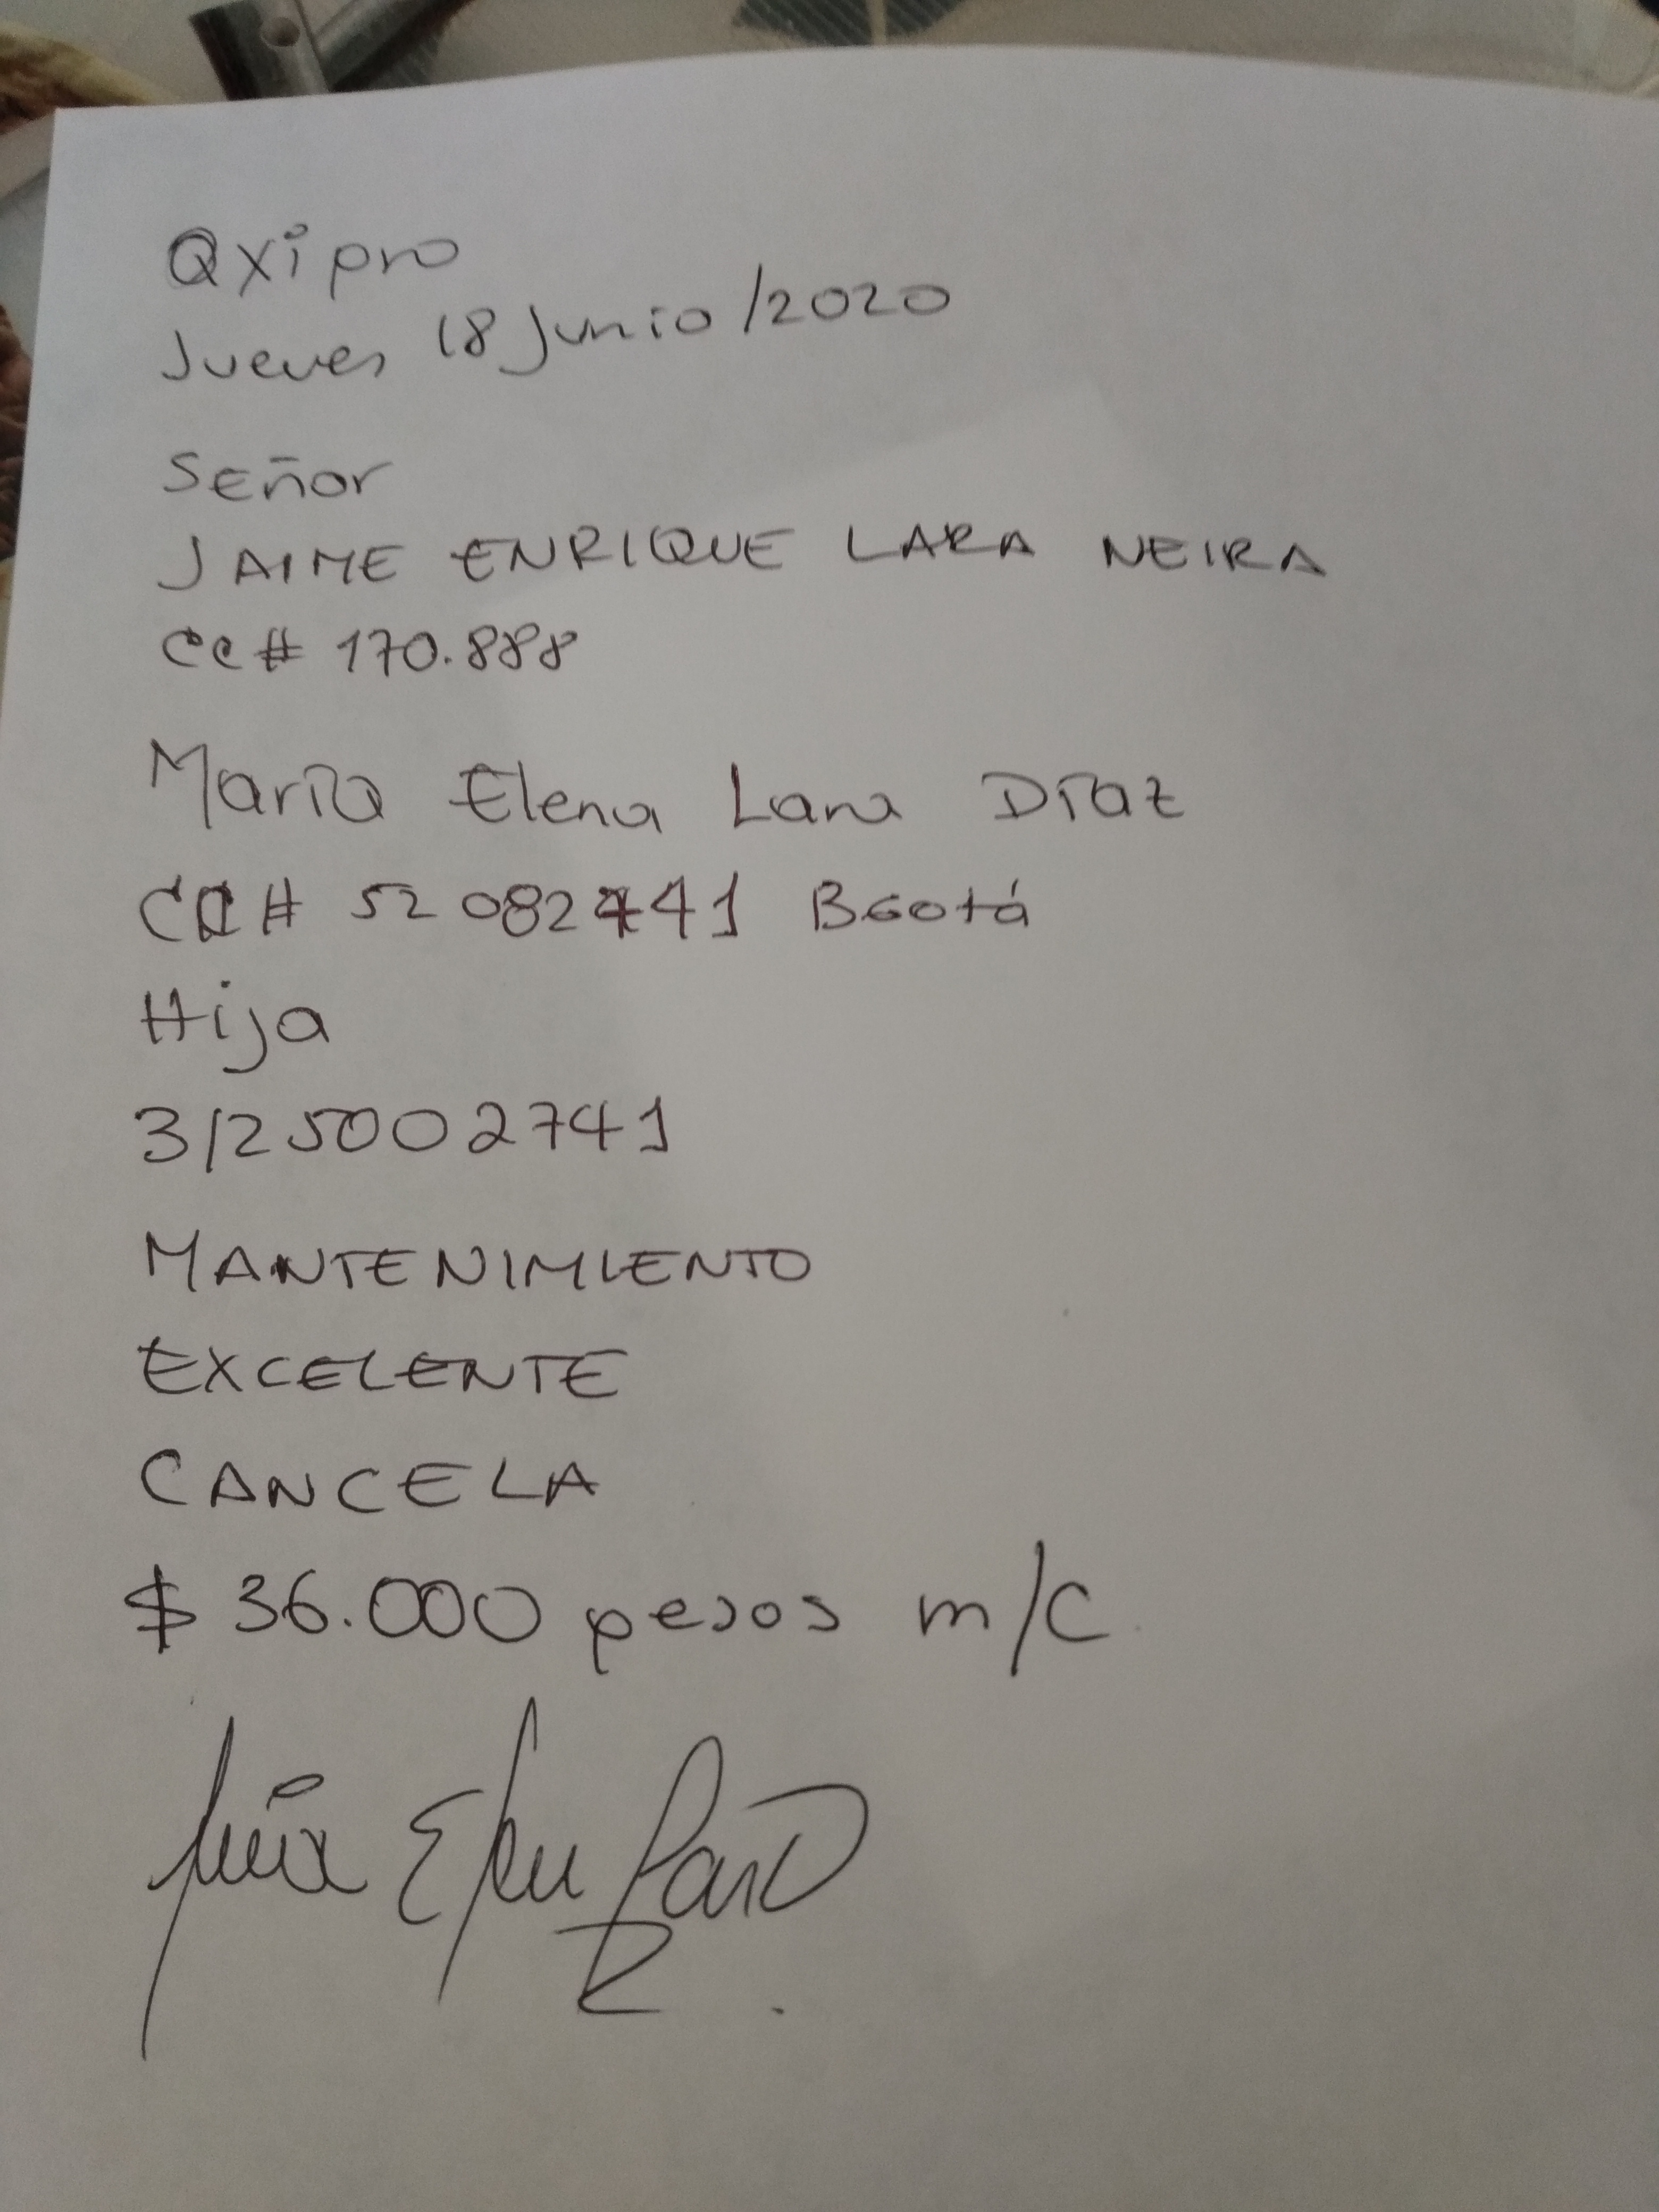 Oxipro
Jueves 18 Junio/2020
Señor
JAIME ENRIQUE LARA NEIRA
CC# 170.888
María Elena Lara Díaz
CC# 52 082 41 Bgotá
Hija
3125002741
MANTENIMIENTO
EXCELENTE
CANCELA
$ 36.000 pesos m/c